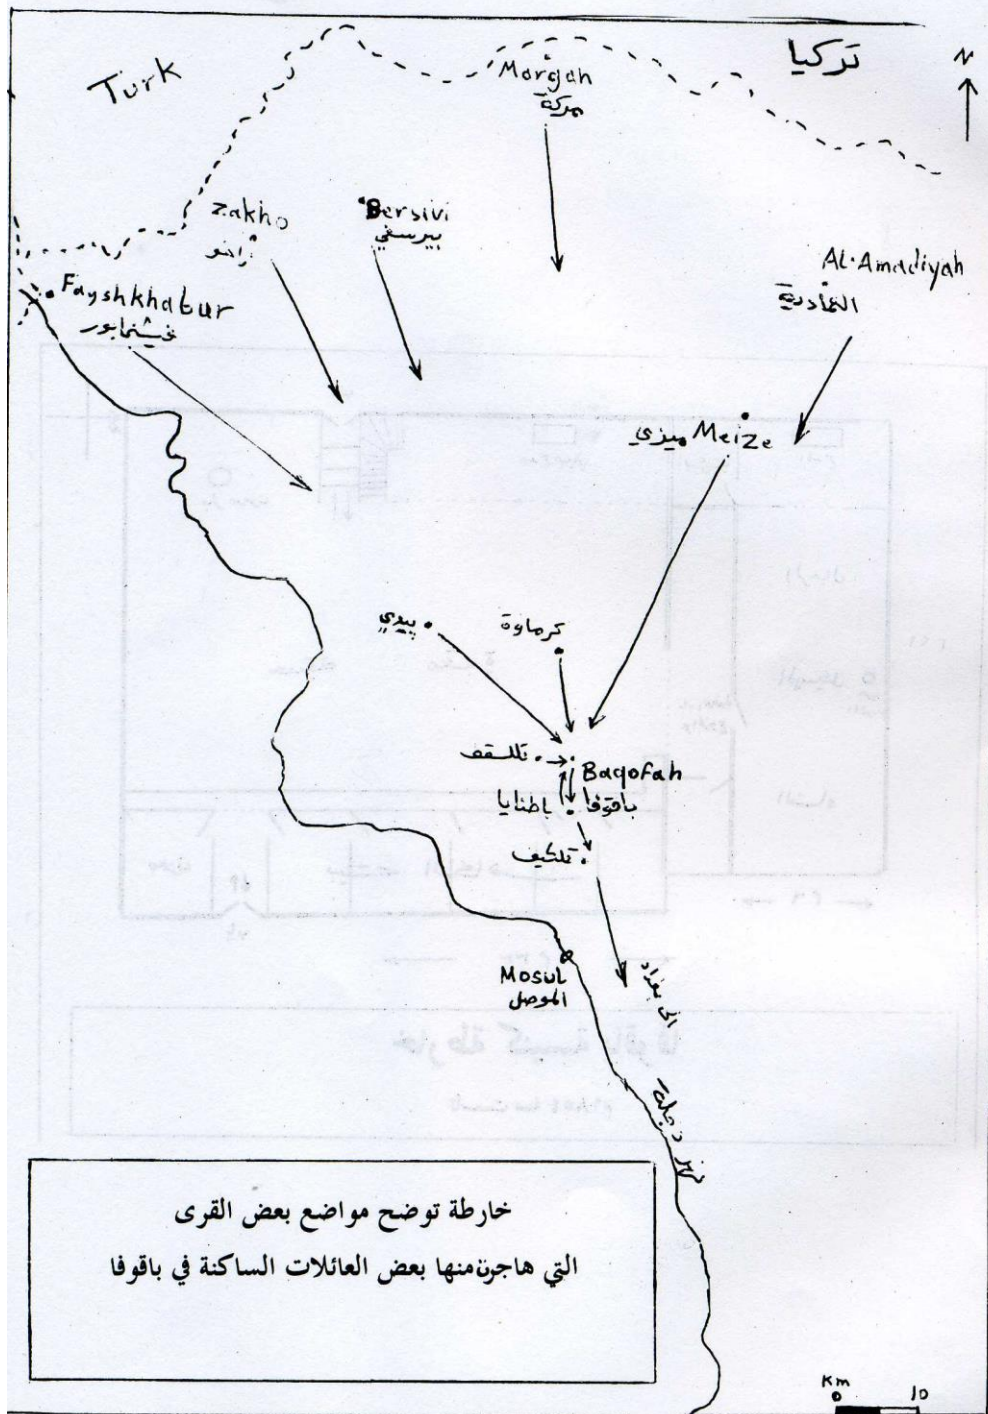 Turk
تركيا
N
Margah
مركة
Zakho
زاخو
Bersivi
بيرسفي
AL.Amadiyah
العمادية
Fayshkhabur
فيشخابور
ميزي Meize
بيدي
كرماوة
تللسقف
Baqofah
باقوفا
باطنايا
تلكيف
Mosul
الموصل
الى بغداد
نهر دجلة
خارطة توضح مواضع بعض القرى
التي هاجرت منها بعض العائلات الساكنة في باقوفا
Km
0 10